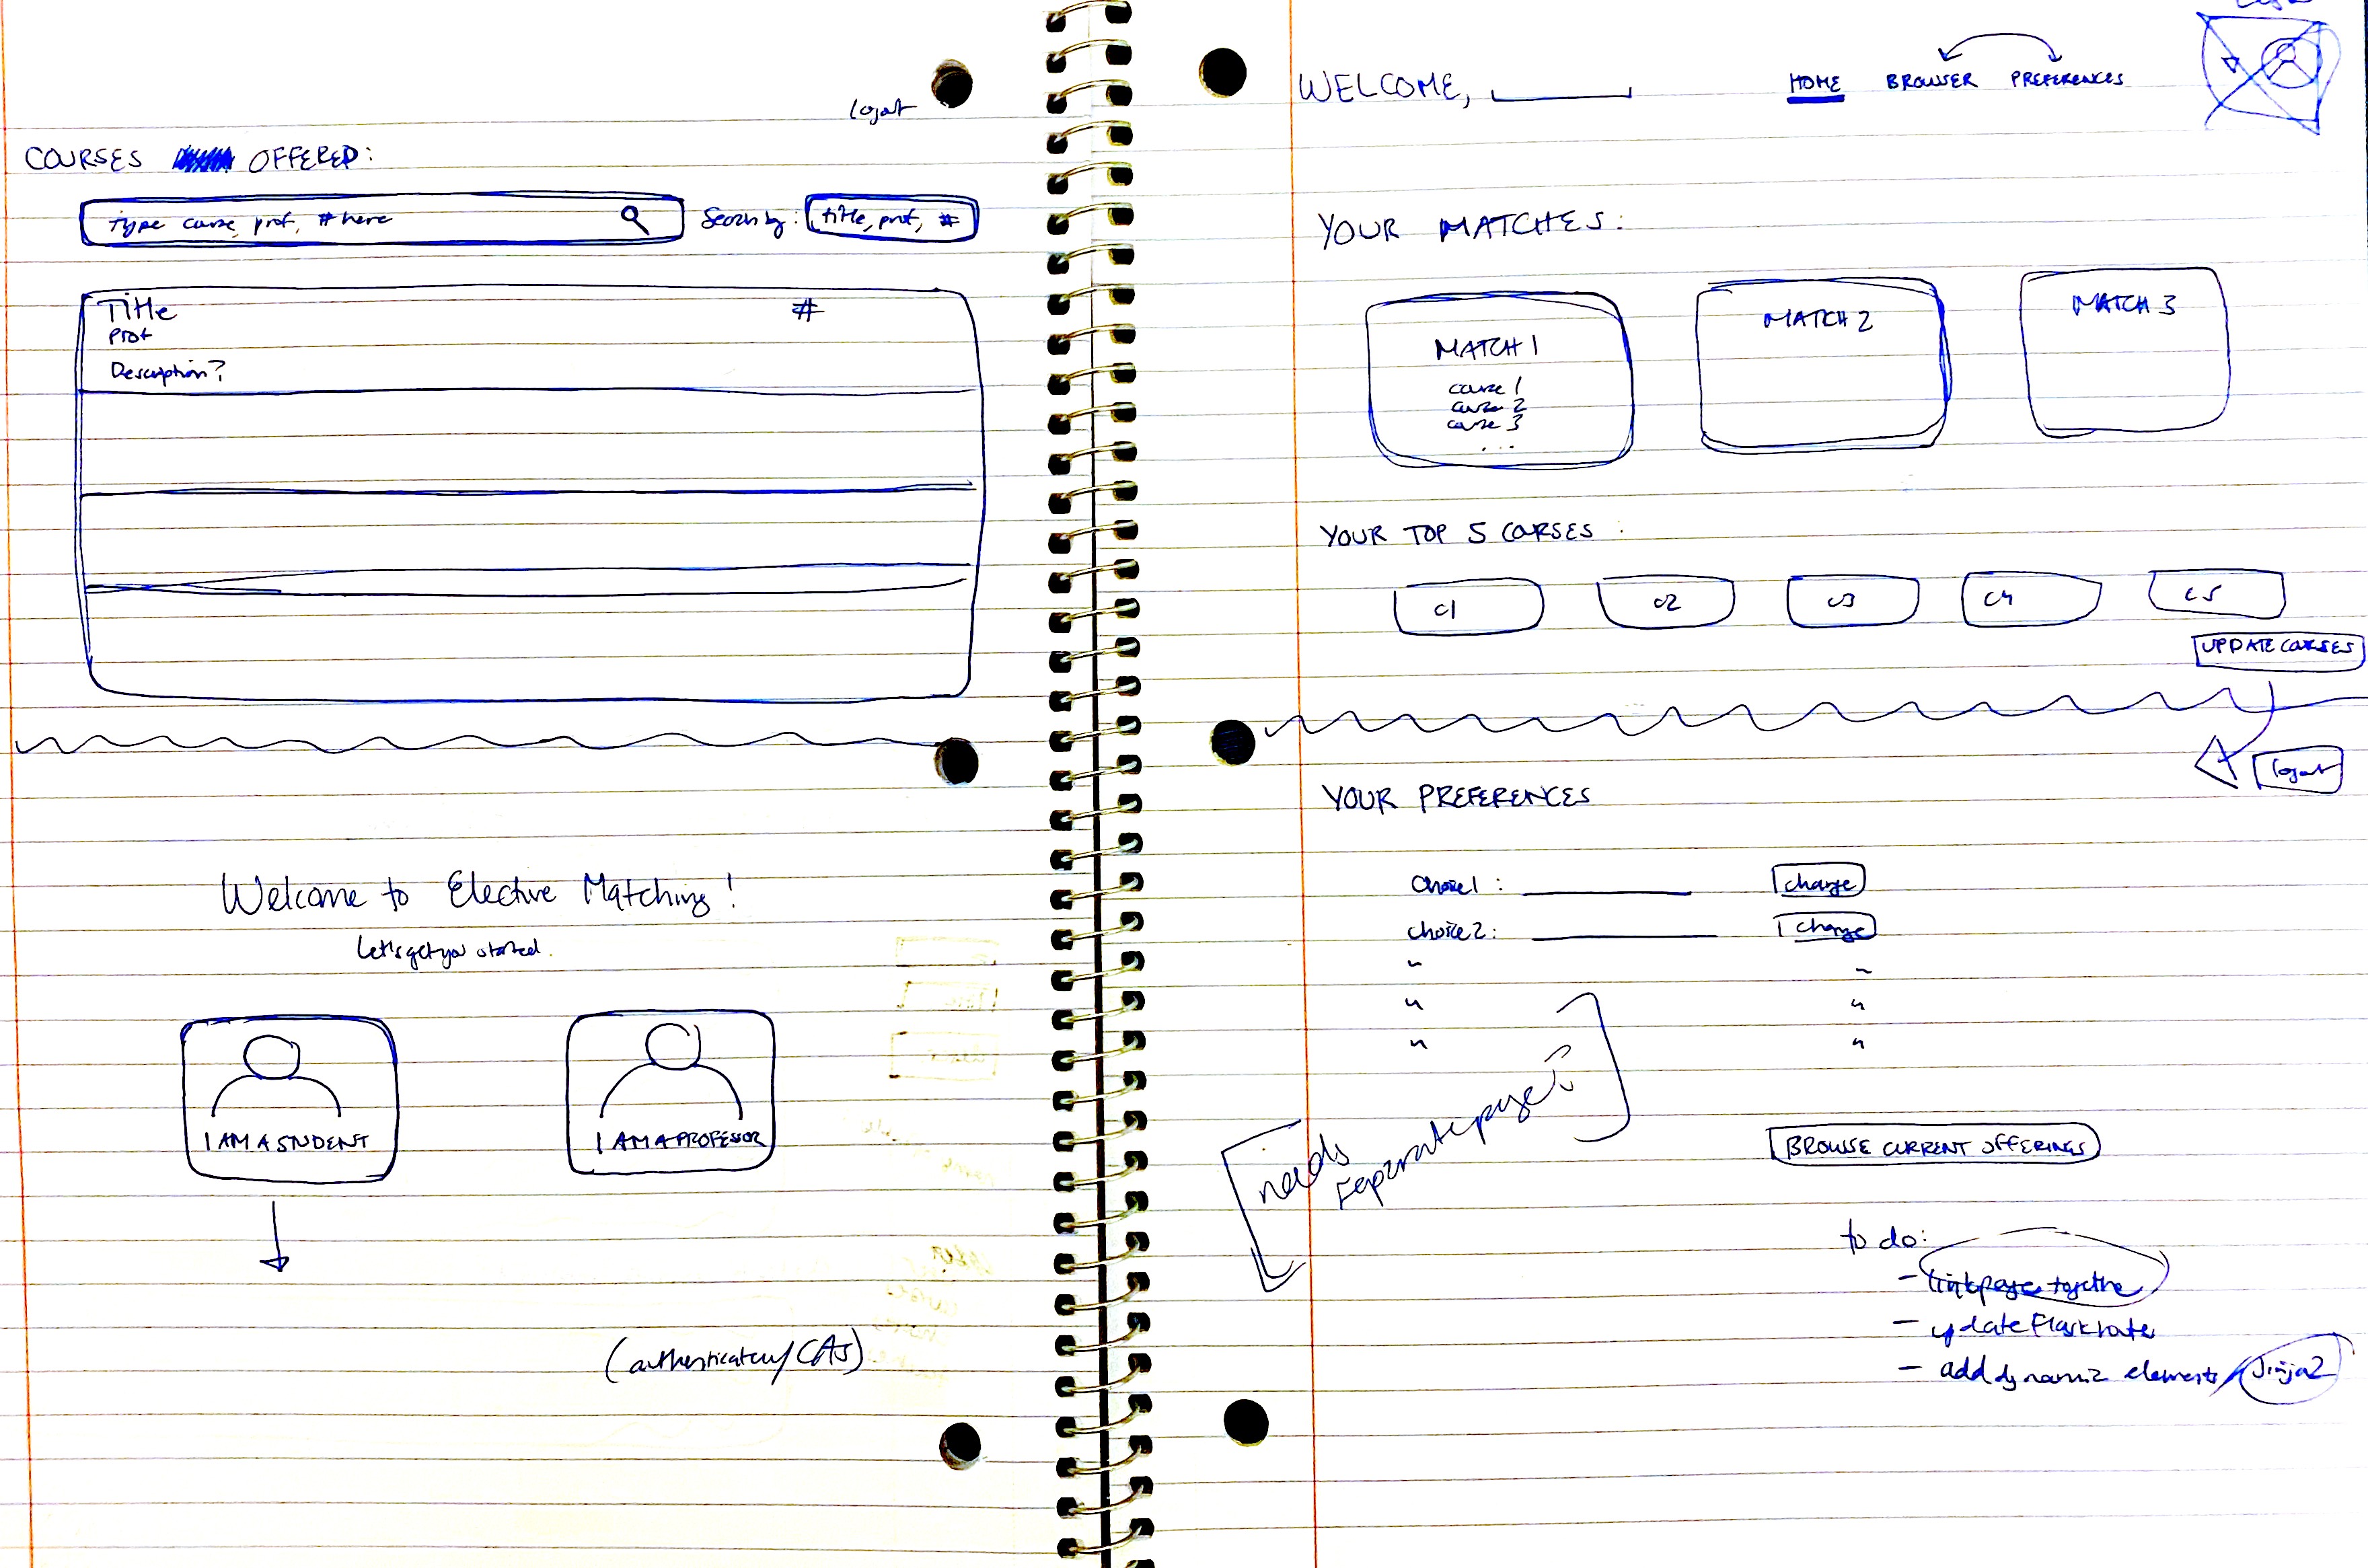 logout
COURSES OFFERED:
type course, prof, # here
Search by: title, prof, #
Title #
Prof
Description?
Welcome to Elective Matching!
Let's get you started.
I AM A STUDENT
I AM A PROFESSOR
(authentication/CAS)
WELCOME,
HOME BROWSER PREFERENCES
YOUR MATCHES:
MATCH 1
course 1
course 2
course 3
...
MATCH 2
MATCH 3
YOUR TOP 5 COURSES:
C1 C2 C3 C4 C5
UPDATE COURSES
logout
YOUR PREFERENCES
Choice 1: change
choice 2: change
" "
" "
" "
needs
separate page?
BROWSE CURRENT OFFERINGS
to do:
- link pages together
- update Flask routes
- add dynamic elements/Jinja2